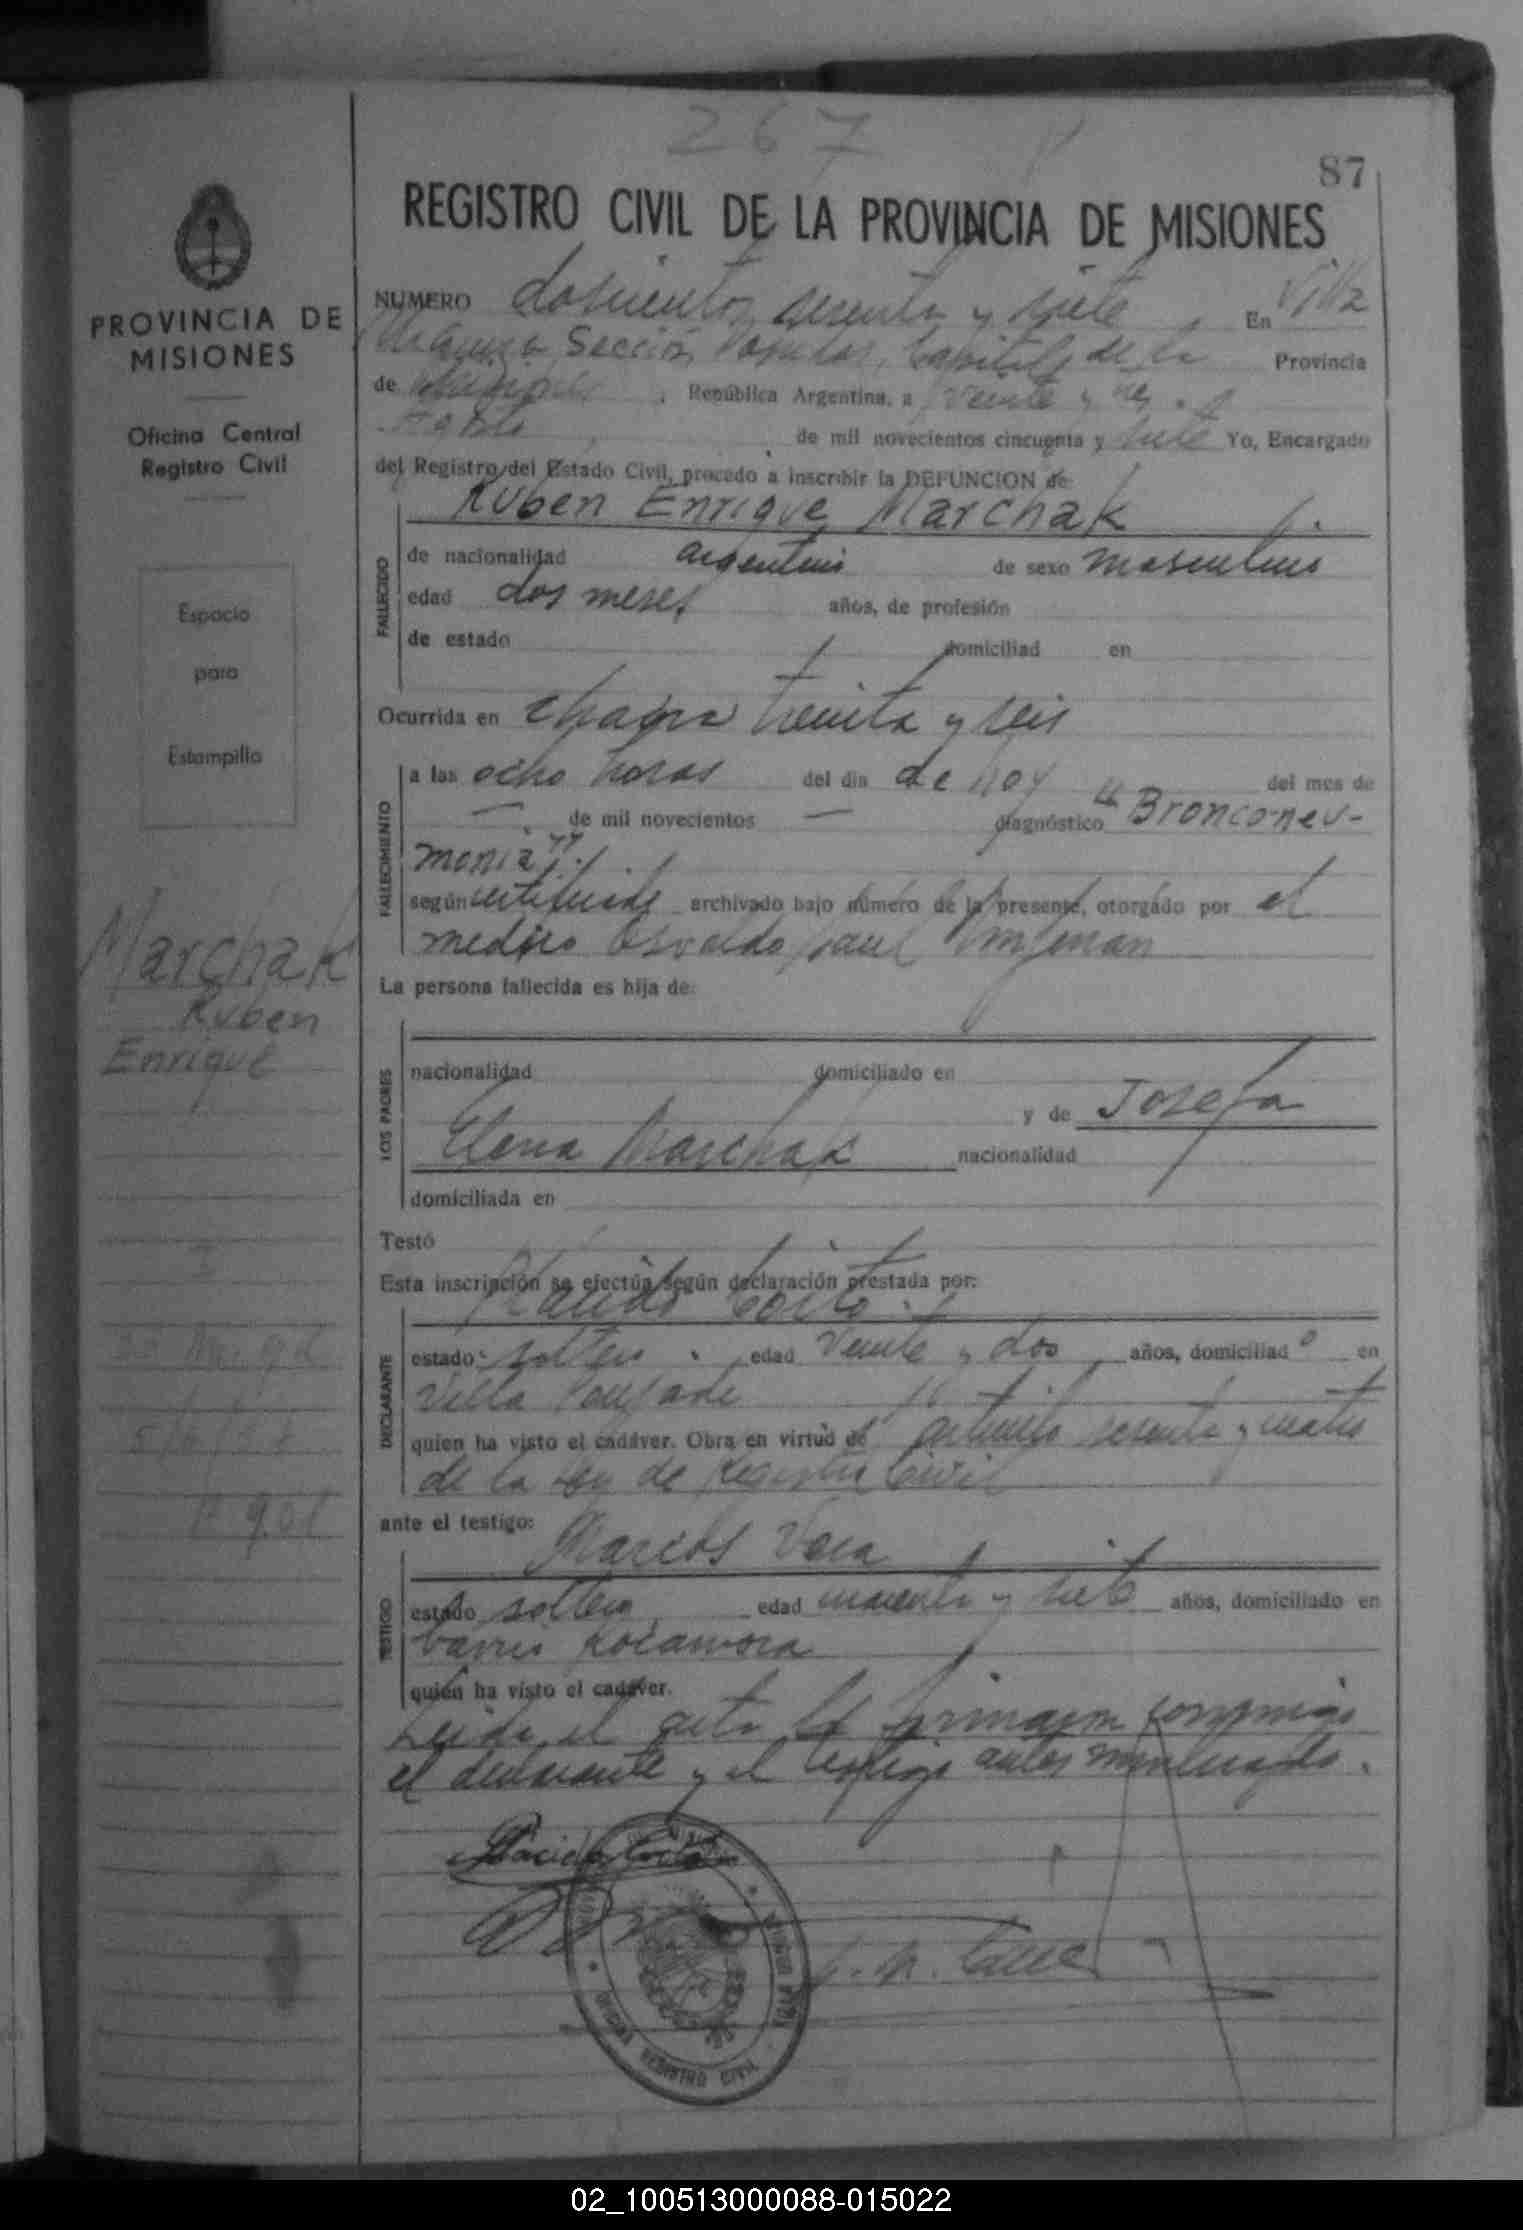 267
87
REGISTRO CIVIL DE LA PROVINCIA DE MISIONES
PROVINCIA DE
MISIONES
Oficina Central
Registro Civil
Espacio
para
Estampilla
Marchak
Ruben
Enrique
NUMERO dosientos sesenta y siete En Villa
Sección Posadas, Capital de la Provincia
de Misiones, República Argentina, a veinte y tres
Agosto de mil novecientos cincuenta y siete Yo, Encargado
del Registro del Estado Civil, procedo a inscribir la DEFUNCION de:
Ruben Enrique Marchak
FALLECIDO
de nacionalidad argentino de sexo masculino
edad dos meses años, de profesión
de estado domiciliad en
Ocurrida en chapa treinta y seis
FALLECIMIENTO
a las ocho horas del día de hoy del mes de
— de mil novecientos — diagnóstico "Bronconeu-
monia".
según certificado archivado bajo número de la presente, otorgado por el
medico Osvaldo
La persona fallecida es hija de:
LOS PADRES
nacionalidad domiciliado en
y de Josefa
Elena Marchak nacionalidad
domiciliada en
Testó
Esta inscripción se efectúa según declaración prestada por:
DECLARANTE
estado: soltero. edad veinte y dos años, domiciliado en
Villa
quien ha visto el cadáver. Obra en virtud de artículo sesenta y cuatro
de la Ley de Registro Civil
ante el testigo:
Marcos Vera
TESTIGO
estado soltero edad cuarenta y siete años, domiciliado en
barrio Rocamora
quien ha visto el cadáver.
Leida el acta la firmaron conmigo
el declarante y el testigo antes mencionado.
OFICINA REGISTRO CIVIL
02_100513000088-015022